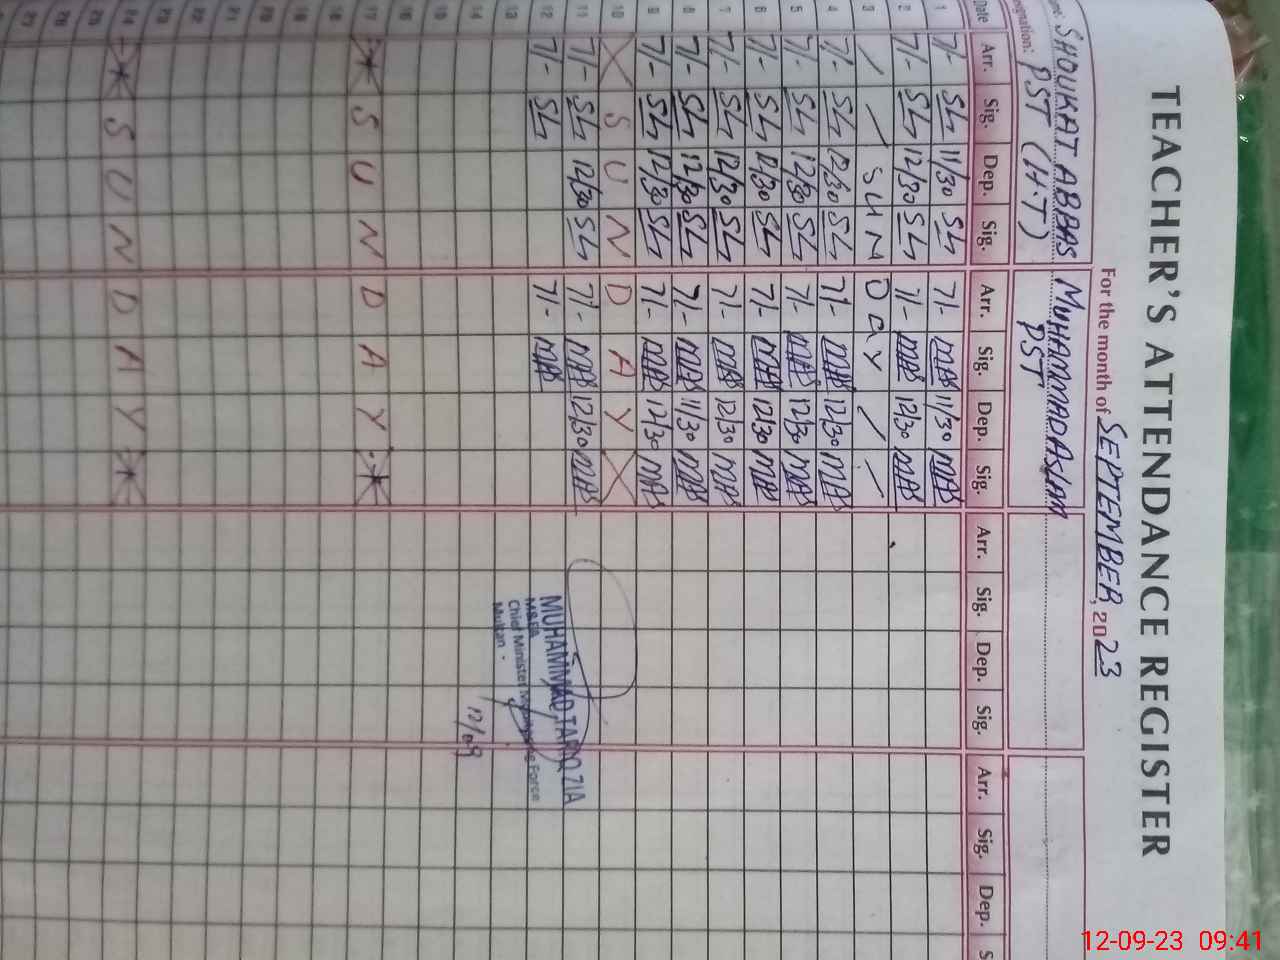 TEACHER'S ATTENDANCE REGISTER
For the month of SEPTEMBER, 2023
SHOUKAT ABBAS MUHAMMAD ASLAM
PST (H.T) PST
Date Arr. Sig. Dep. Sig. Arr. Sig. Dep. Sig. Arr. Sig. Dep. Sig. Arr. Sig. Dep.
1 7/- 11/30 7/- MAS 11/30 MAS
2 7/- 12/30 7/- MAS 12/30 MAS
3 SUNDAY
4 7/- 12/30 7/- MAS 12/30 MAS
5 7/- 12/30 7/- MAS 12/30 MAS
6 7/- 12/30 7/- MAS 12/30 MAS
7 7/- 12/30 7/- MAS 12/30 MAS
8 7/- 12/30 7/- MAS 11/30 MAS
9 7/- 12/30 7/- MAS 12/30 MAS
10 SUNDAY
11 7/- 12/30 7/- MAS 12/30 MAS
12 7/- 7/- MAS
13
14
15
16
17 SUNDAY
18
19
20
21
22
23
24 SUNDAY
25
26
27
MUHAMMAD TARIQ ZIA
MSEA
Chief Minister Monitoring Force
Multan
12/09
12-09-23 09:41